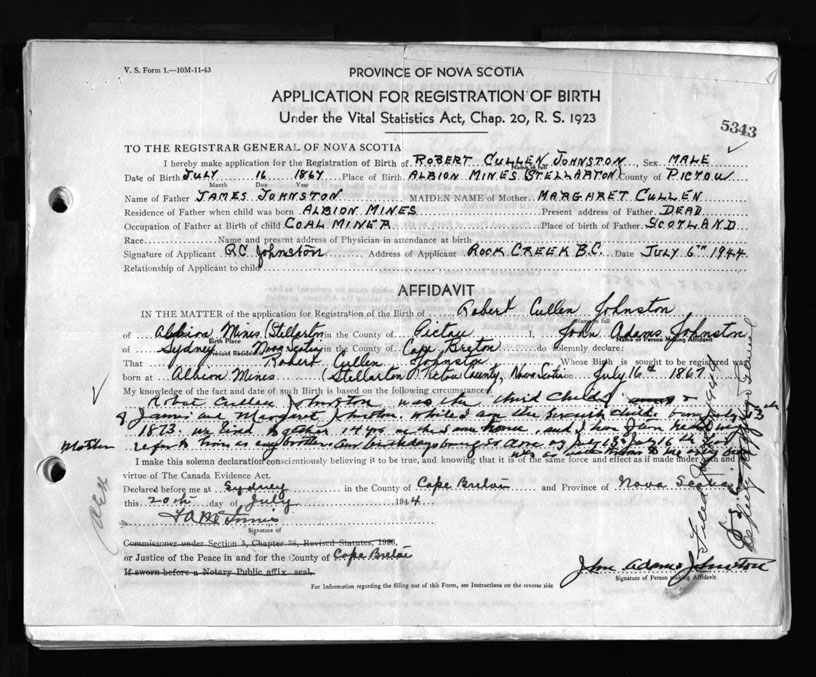 V. S. Form 1.—10M-11-43
PROVINCE OF NOVA SCOTIA
APPLICATION FOR REGISTRATION OF BIRTH
Under the Vital Statistics Act, Chap. 20, R. S. 1923
5343
TO THE REGISTRAR GENERAL OF NOVA SCOTIA
I hereby make application for the Registration of Birth of ROBERT CULLEN JOHNSTON, Sex MALE
Name in full
Date of Birth JULY 16 1867 Place of Birth ALBION MINES (STELLARTON) County of PICTOU
Month Date Year
Name of Father JAMES JOHNSTON MAIDEN NAME of Mother MARGARET CULLEN
Residence of Father when child was born ALBION MINES Present address of Father DEAD
Occupation of Father at Birth of child COAL MINER Place of birth of Father SCOTLAND
Race Name and present address of Physician in attendance at birth
Signature of Applicant R.C. Johnston Address of Applicant ROCK CREEK B.C. Date JULY 6TH 1944
Relationship of Applicant to child
AFFIDAVIT
IN THE MATTER of the application for Registration of the Birth of Robert Cullen Johnston
Name in full
of Albion Mines (Stellarton in the County of Pictou I, John Adams Johnston
Birth Place Name of Person Making Affidavit
of Sydney Nova Scotia in the County of Cape Breton do solemnly declare:
Present Residence
That Robert Cullen Johnston Whose Birth is sought to be registered was
born at Albion Mines (Stellarton) Pictou County, Nova Scotia July 16th 1867
My knowledge of the fact and date of such Birth is based on the following circumstances
Robert Cullen Johnston was the third child
of James and Margaret Johnston. While I am the seventh child born July 13th
1873. We lived together 14 yrs in the same house, and I have often heard my
Mother refer to him as my brother. Our birthdays being so close as July 13 & July 16th
I make this solemn declaration conscientiously believing it to be true, and knowing that it is of the same force and effect as if made under oath and by
virtue of The Canada Evidence Act.
Declared before me at Sydney in the County of Cape Breton and Province of Nova Scotia
this 20th day of July 1944
Signature of
Commissioner under Section 5, Chapter 38, Revised Statutes, 1923,
or Justice of the Peace in and for the County of Cape Breton
If sworn before a Notary Public affix seal.
John Adams Johnston
Signature of Person Making Affidavit
For Information regarding the filling out of this Form, see Instructions on the reverse side